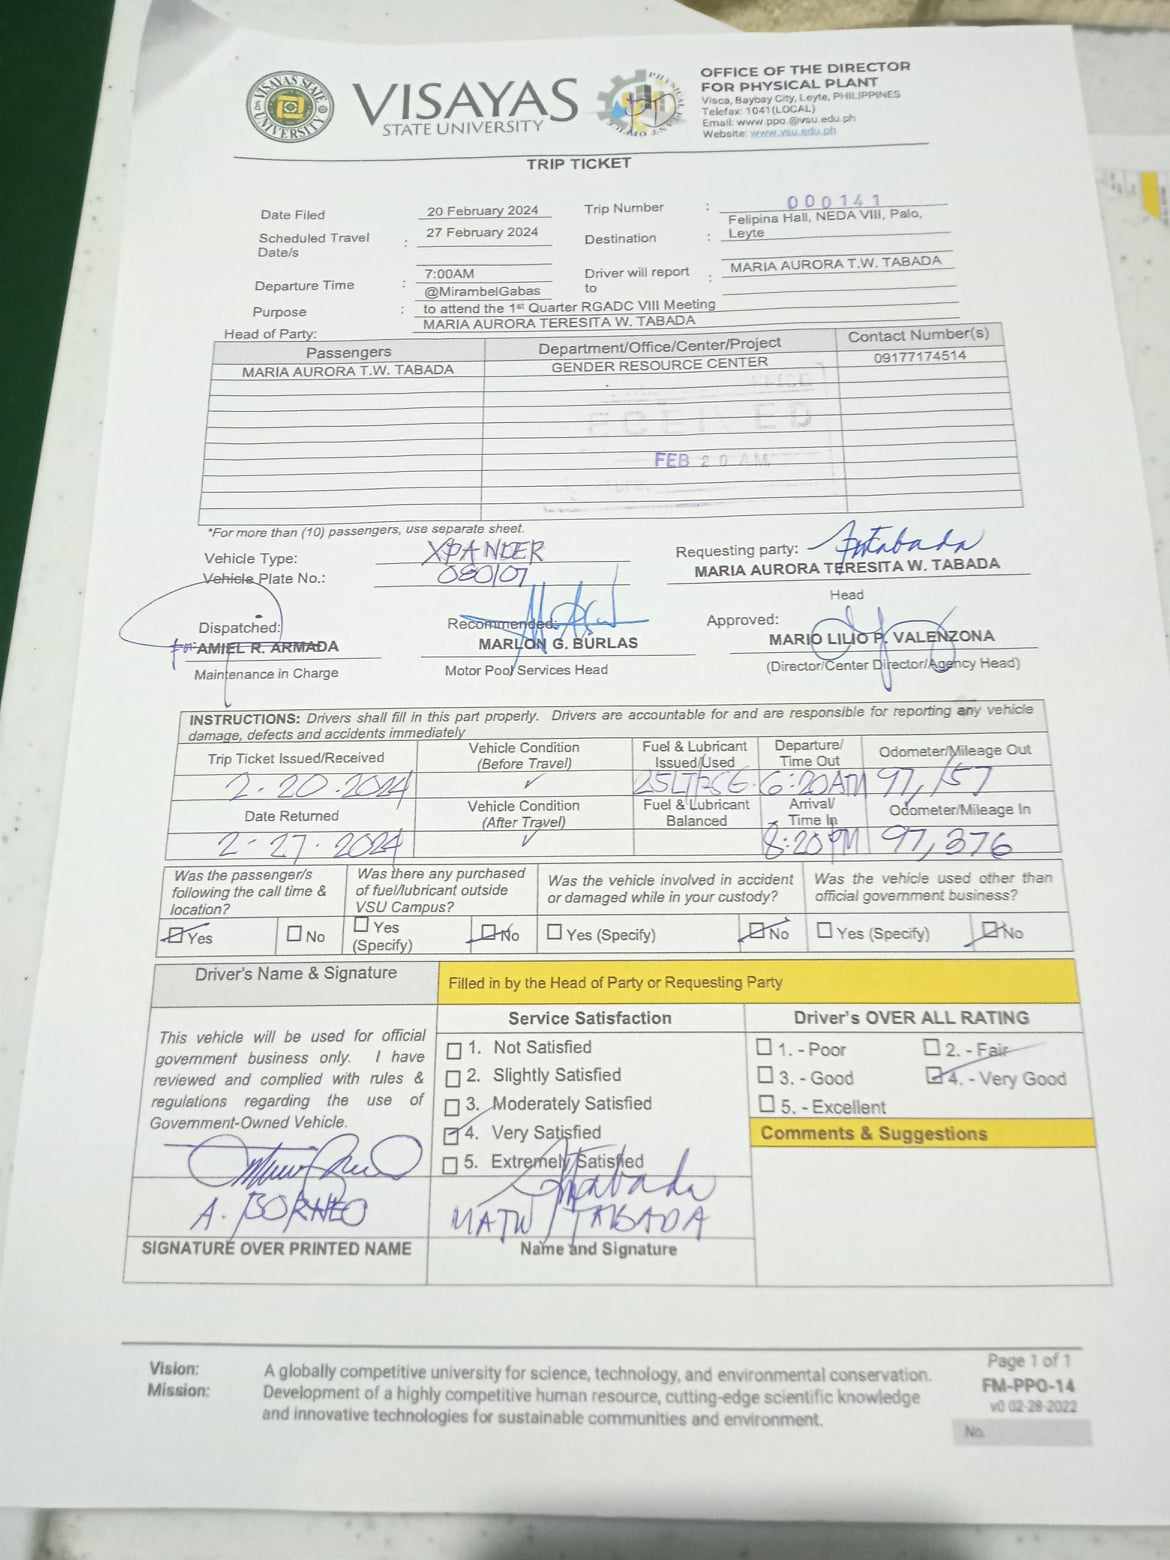 VISAYAS STATE UNIVERSITY
VISAYAS
STATE UNIVERSITY
OFFICE OF THE DIRECTOR
FOR PHYSICAL PLANT
Visca, Baybay City, Leyte, PHILIPPINES
Telefax: 1041(LOCAL)
Email: www.ppo.@vsu.edu.ph
Website: www.vsu.edu.ph
TRIP TICKET
Date Filed 20 February 2024 Trip Number : 000141
Scheduled Travel Date/s : 27 February 2024 Destination : Felipina Hall, NEDA VIII, Palo, Leyte
Departure Time : 7:00AM @MirambelGabas Driver will report to : MARIA AURORA T.W. TABADA
Purpose : to attend the 1st Quarter RGADC VIII Meeting
Head of Party: MARIA AURORA TERESITA W. TABADA
Passengers Department/Office/Center/Project Contact Number(s)
MARIA AURORA T.W. TABADA GENDER RESOURCE CENTER 09177174514
ECEIVED
FEB 20 AM
*For more than (10) passengers, use separate sheet.
Vehicle Type: XPANDER Requesting party: Tabada
Vehicle Plate No.: 080107 MARIA AURORA TERESITA W. TABADA
Head
Dispatched: Recommended: Approved:
for: AMIEL R. ARMADA MARLON G. BURLAS MARIO LILIO P. VALENZONA
Maintenance in Charge Motor Pool Services Head (Director/Center Director/Agency Head)
INSTRUCTIONS: Drivers shall fill in this part properly. Drivers are accountable for and are responsible for reporting any vehicle
damage, defects and accidents immediately
Trip Ticket Issued/Received Vehicle Condition (Before Travel) Fuel & Lubricant Issued/Used Departure/ Time Out Odometer/Mileage Out
2-20-2024 ✓ 6:20AM 97,157
Date Returned Vehicle Condition (After Travel) Fuel & Lubricant Balanced Arrival/ Time In Odometer/Mileage In
2-27-2024 ✓ 8:20PM 97,376
Was the passenger/s following the call time & location? Was there any purchased of fuel/lubricant outside VSU Campus? Was the vehicle involved in accident or damaged while in your custody? Was the vehicle used other than official government business?
Yes No Yes (Specify) No Yes (Specify) No Yes (Specify) No
Driver's Name & Signature Filled in by the Head of Party or Requesting Party
Service Satisfaction Driver's OVER ALL RATING
This vehicle will be used for official
government business only. I have
reviewed and complied with rules &
regulations regarding the use of
Government-Owned Vehicle.
1. Not Satisfied
2. Slightly Satisfied
3. Moderately Satisfied
4. Very Satisfied
5. Extremely Satisfied
1. - Poor 2. - Fair
3. - Good 4. - Very Good
5. - Excellent
Comments & Suggestions
Tabada
A. BORNEO MATW TABADA
SIGNATURE OVER PRINTED NAME Name and Signature
Vision: A globally competitive university for science, technology, and environmental conservation.
Mission: Development of a highly competitive human resource, cutting-edge scientific knowledge
and innovative technologies for sustainable communities and environment.
Page 1 of 1
FM-PPO-14
v0 02-28-2022
No.